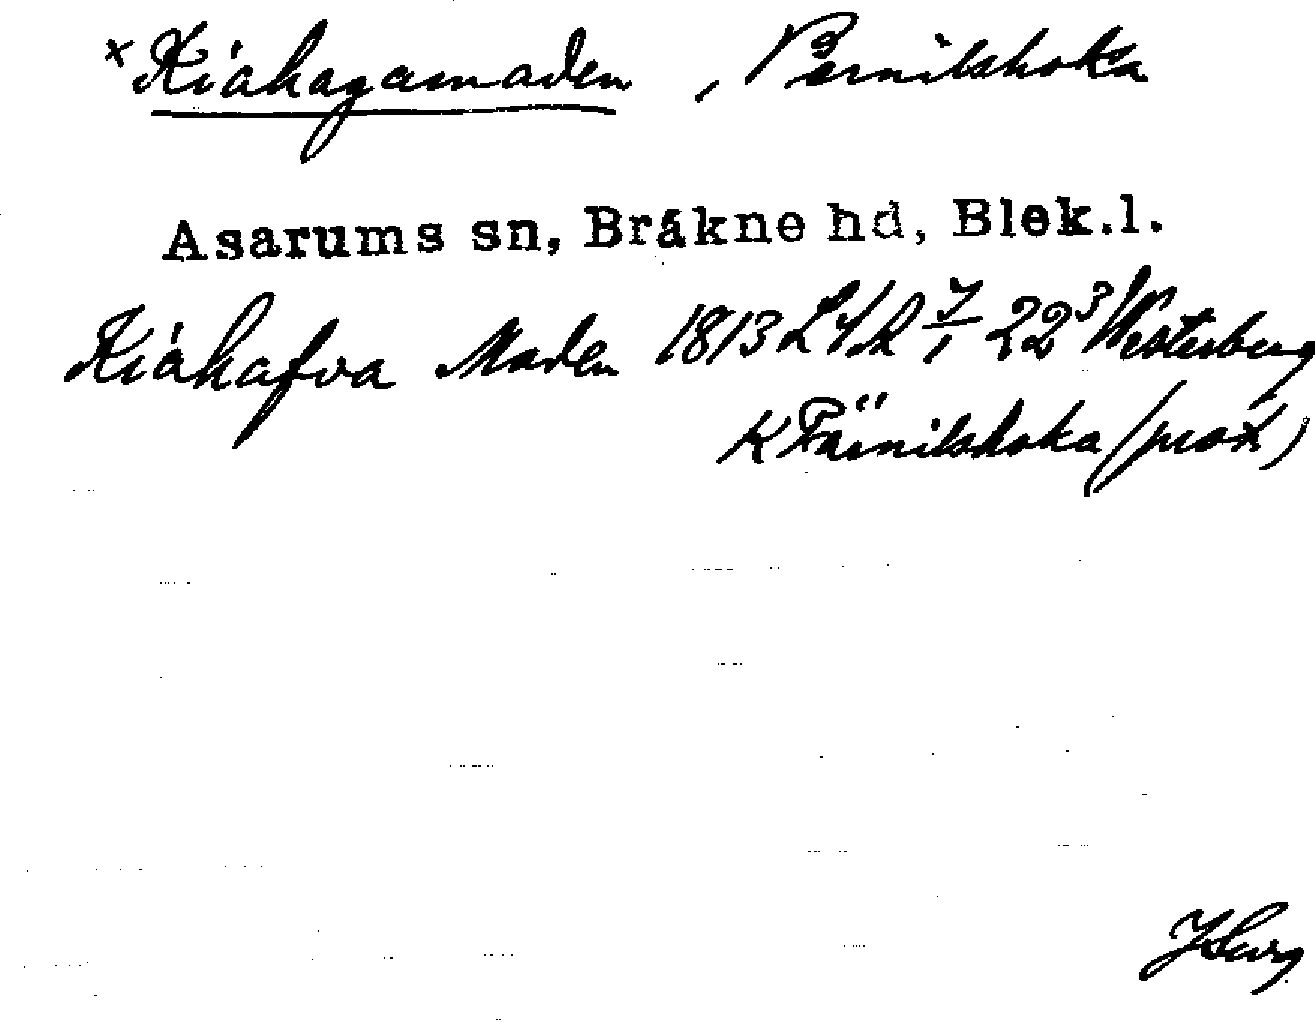 ×Kråkagamaden, Pernilskoka
Asarums sn, Bräkne hd, Blek.l.
Kråkafva Maden 1813 LSk 7/1 22³ Westerberg
K Pärnilskoka (prox)